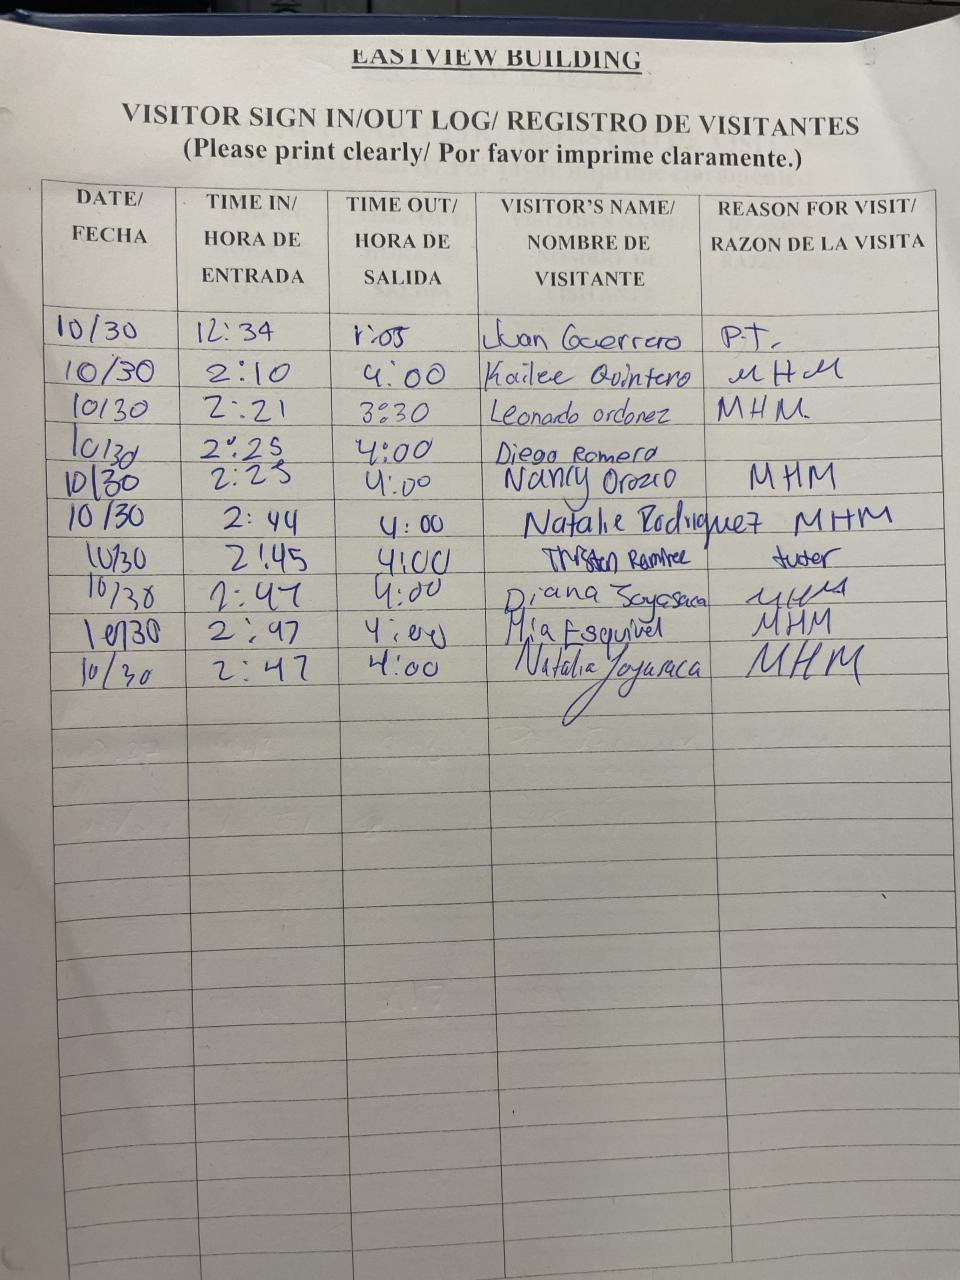 EASTVIEW BUILDING
VISITOR SIGN IN/OUT LOG/ REGISTRO DE VISITANTES
(Please print clearly/ Por favor imprime claramente.)
DATE/ FECHA TIME IN/ HORA DE ENTRADA TIME OUT/ HORA DE SALIDA VISITOR'S NAME/ NOMBRE DE VISITANTE REASON FOR VISIT/ RAZON DE LA VISITA
10/30 12:34 1:05 Juan Guerrero P.T.
10/30 2:10 4:00 Kailee Quintero MHM
10/30 2:21 3:30 Leonardo ordonez MHM.
10/30 2:25 4:00 Diego Romero
10/30 2:25 4:00 Nancy Orozco MHM
10/30 2:44 4:00 Natalie Rodriguez MHM
10/30 2:45 4:00 Ramirez tutor
10/30 2:47 4:00 Diana MHM
10/30 2:47 4:00 Mia Esquivel MHM
10/30 2:47 4:00 Natalia MHM